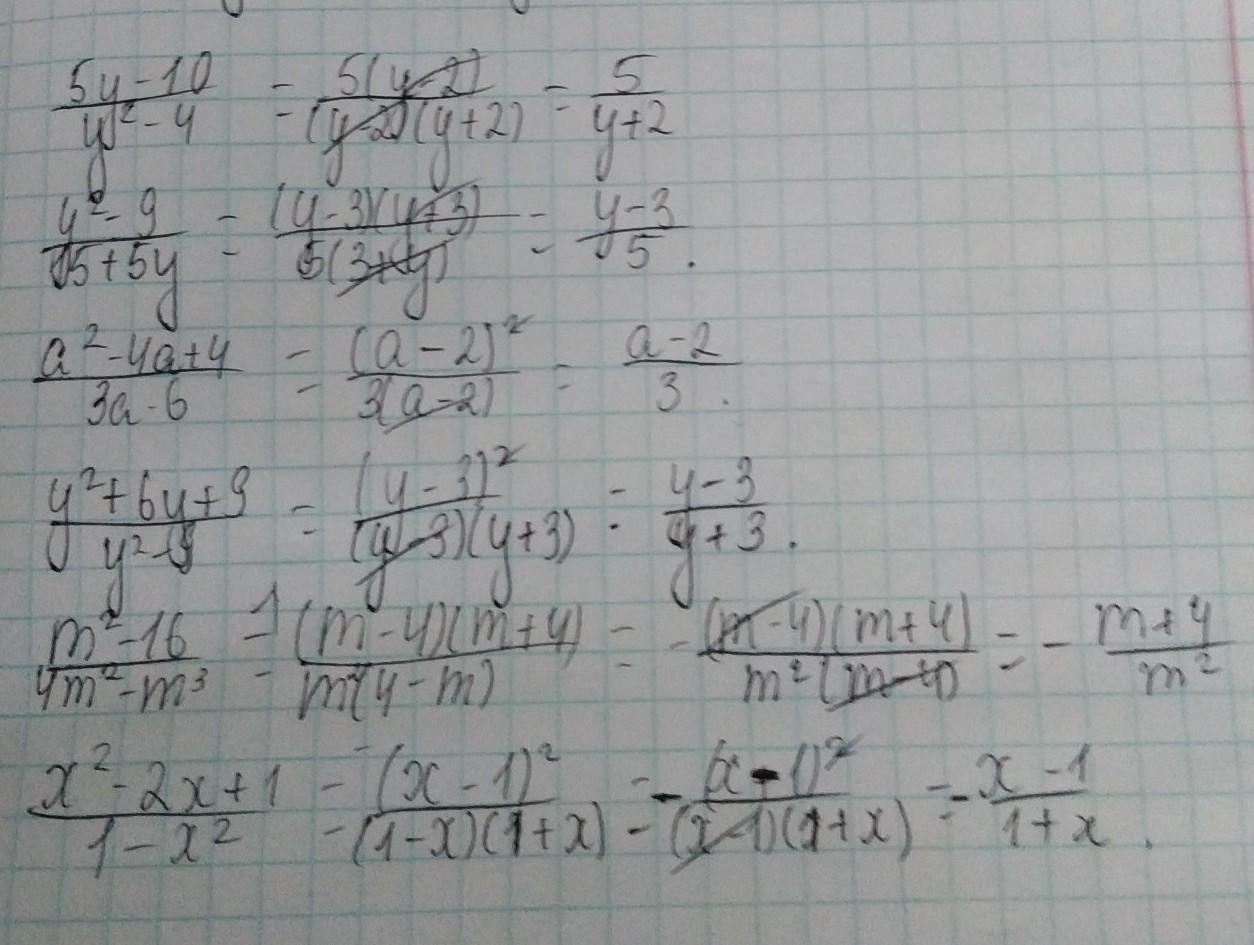 (5y-10)/(y²-4) = 5(y-2)/((y-2)(y+2)) = 5/(y+2)
(y²-9)/(15+5y) = (y-3)(y+3)/(5(3+y)) = (y-3)/5.
(a²-4a+4)/(3a-6) = (a-2)²/(3(a-2)) = (a-2)/3.
(y²+6y+9)/(y²-9) = (y-3)²/((y-3)(y+3)) = (y-3)/(y+3).
(m²-16)/(4m²-m³) = (m-4)(m+4)/(m²(4-m)) = -(m-4)(m+4)/(m²(m-4)) = -(m+4)/m²
(x²-2x+1)/(1-x²) = (x-1)²/((1-x)(1+x)) = -(x-1)²/((x-1)(1+x)) = -(x-1)/(1+x).